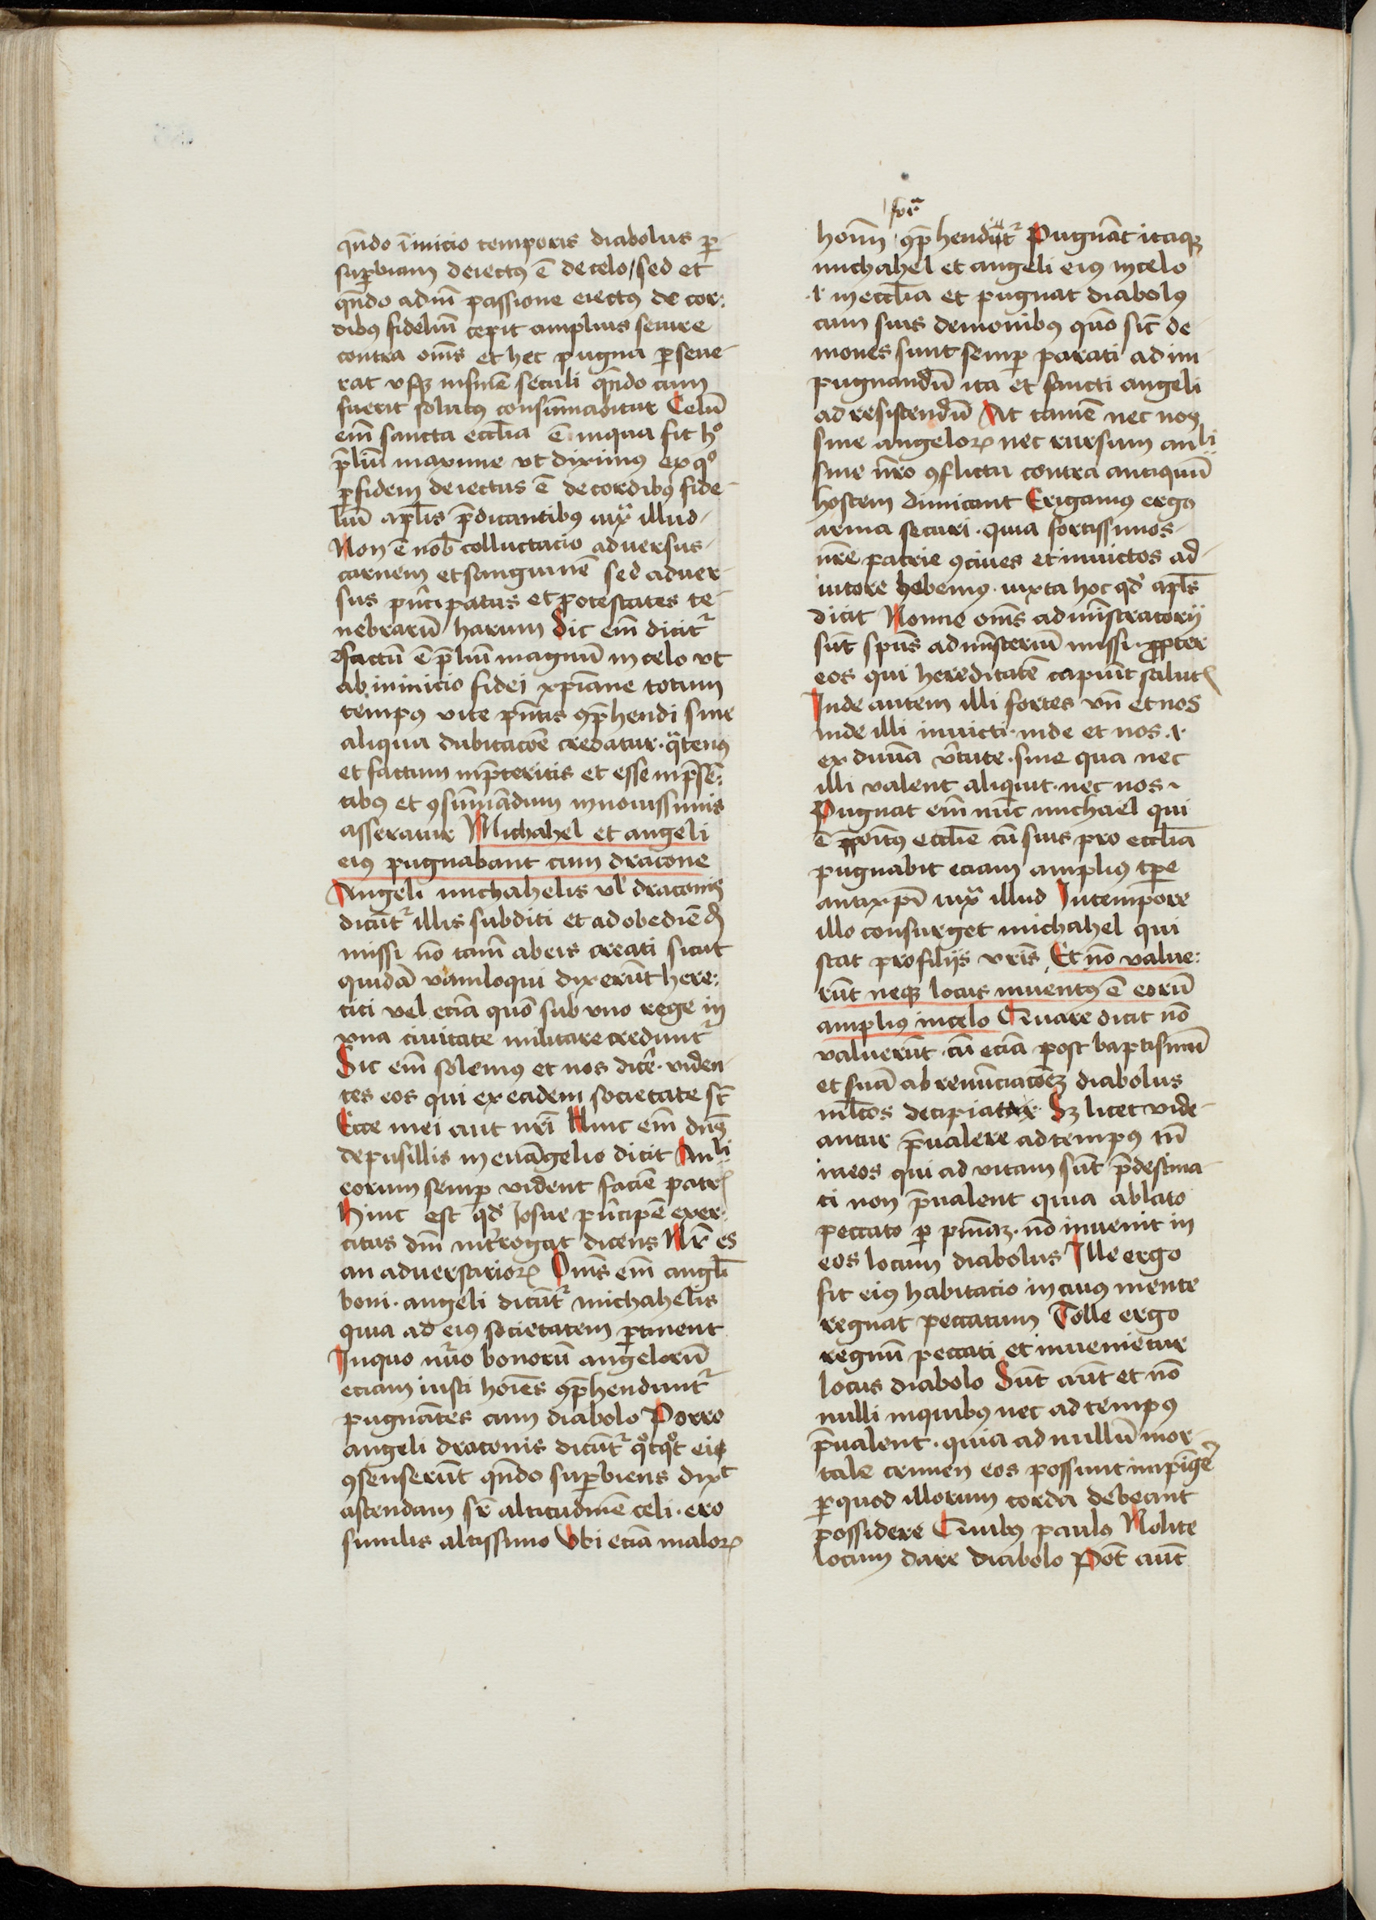 qn̄do ī inicio temporis diabolus ꝑ
suꝑbiam deiectus ē de celo / sed et
qn̄do adūi passione eiectus de cor:
dibus fideliū cepit amplius seuire
contra om̄s et hec pugna ꝑseue
rat vsqꝫ in finē seculi qn̄do cum
fuerit solutus consūmabitur Celū
em̄ sancta eccl̄ia ē in qua fit hͦ
p̄liū maxime vt diximus ex qͦ
ꝑ fidem deiectus ē de cordibꝰ fide
liū apl̄is p̄dicantibꝰ iuxͣ illud
Non ē nob̄ colluctacio aduersus
carnem et sanguinē sed aduer
sus pn̄cipatus et potestates te
nebrarū harum Sic em̄ dicitᷣ
factū ē p̄liū magnū in celo vt
ab inicio fidei xp̄iane totum
tempꝰ vite pn̄tis ꝯp̄hendi sine
aliqua dubitacōe credatur · qͣtenꝰ
et factum in p̄teritis et esse in p̄sen
tibꝰ et ꝯsūmādum in nouissimis
asseratur Michahel et angeli
eiꝰ pugnabant cum dracone
Angeli michahelis vl̄ draconis
dicūtᷣ illis subditi et ad obediēdū
missi nō tam̄ ab eis creati sicut
quidā vaniloqui dixerūt here:
tici vel eciā quō sub vno rege in
vna ciuitate militare creduntᷣ
Sic em̄ solemꝰ et nos dicer̄ · viden
tes eos qui ex eadem societate sūt
Ecce mei aut nr̄i Hinc em̄ dn̄s
de pusillis in euāgelio dicit Anͥli
eorum semꝑ vident faciē patris
Hinc est qd̓ Josue pn̄cipē exer:
citus dn̄i int̓rogat dicens Nr̄ es
an aduersarioꝝ Om̄s em̄ angl̄i
boni · angeli dicūtᷣ michahelis
quia ad eiꝰ societatem ꝑtinent
In quo nūo bonorū angelorū
eciam iusti hoīes ꝯp̄henduntᷣ
pugnātes cum diabolo Porro
angeli draconis dicūtᷣ qͦtqͦt ei
ꝯsenserūt qn̄do suꝑbiens dixͭ
ascendam sr̄ altitudinē celi · ero
similis altissimo Vbi eciā maloꝝ
hoīm ꝯp̄hendūtᷣ Pugnāt itaqꝫ
michahel et angeli eiꝰ in celo
·i· in eccl̄ia et pugnat diabolꝰ
cum suis demonibꝰ quō sic̄ de
mones sunt semꝑ parati ad im
pugnandū ita et sancti angeli
ad resistendū At tamē nec nos
sine angeloꝝ nec rursum anͥli
sine nr̄o ꝯflictu contra antiquū
hostem dimicant Erigamꝰ ergo
arma securi · quia fortissimos
nr̄e patrie ꝯciues et inuictos ad
iutore habemꝰ · iuxta hoc qd̓ apl̄s
dicit Nonne om̄s admīstratorij
sūt spūs ad mīsteriū missi · ꝓpter
eos qui hereditatē capiūt salutis
Inde autem illi fortes vn̄ et nos
inde illi inuicti · inde et nos ·i·
ex diuīa v̓tute · sine qua nec
illi valent aliquit · nec nos ·
Pugnat em̄ nūc michael qui
ē p̄positꝰ eccl̄ie cū suis pro eccl̄ia
pugnabit eciam ampliꝰ tp̄e
antixp̄i iuxͣ illud In tempore
illo consurget michahel qui
stat pro filijs vr̄is Et nō value:
rūt neqꝫ locus inuentꝰ ē eorū
ampliꝰ in celo Quare dicit nō
valuerūt · cū eciā post baptismū
et suā abrenūciacōeꝫ diabolus
ml̄tos decipiat Sꝫ licet vide
antur p̄ualere ad tempꝰ tn̄
in eos qui ad vitam sūt p̄destina
ti non p̄ualent quia ablato
peccato ꝑ pnīaꝫ · nō inuenit in
eos locum diabolus Ille ergo
fit eiꝰ habitacio in cuiꝰ mente
regnat peccatum Tolle ergo
regnū peccati et inuenietur
locus diabolo Sūt aūt et nō
nulli in quibꝰ nec ad tempꝰ
p̄ualent · quia ad nullū mor
tale crimen eos possunt impīger̄
ꝑ quod illorum corda debeant
possidere Quibꝰ paulꝰ Nolite
locum dare diabolo Pōt aūt